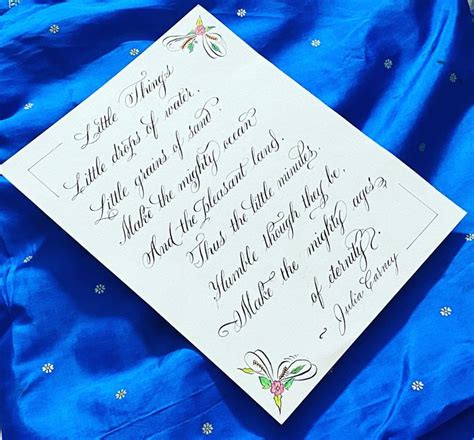 Little Things
Little drops of water,
Little grains of sand,
Make the mighty ocean
And the pleasant land.
Thus the little minutes,
Humble though they be,
Make the mighty ages
of eternity.
~ Julia Carney